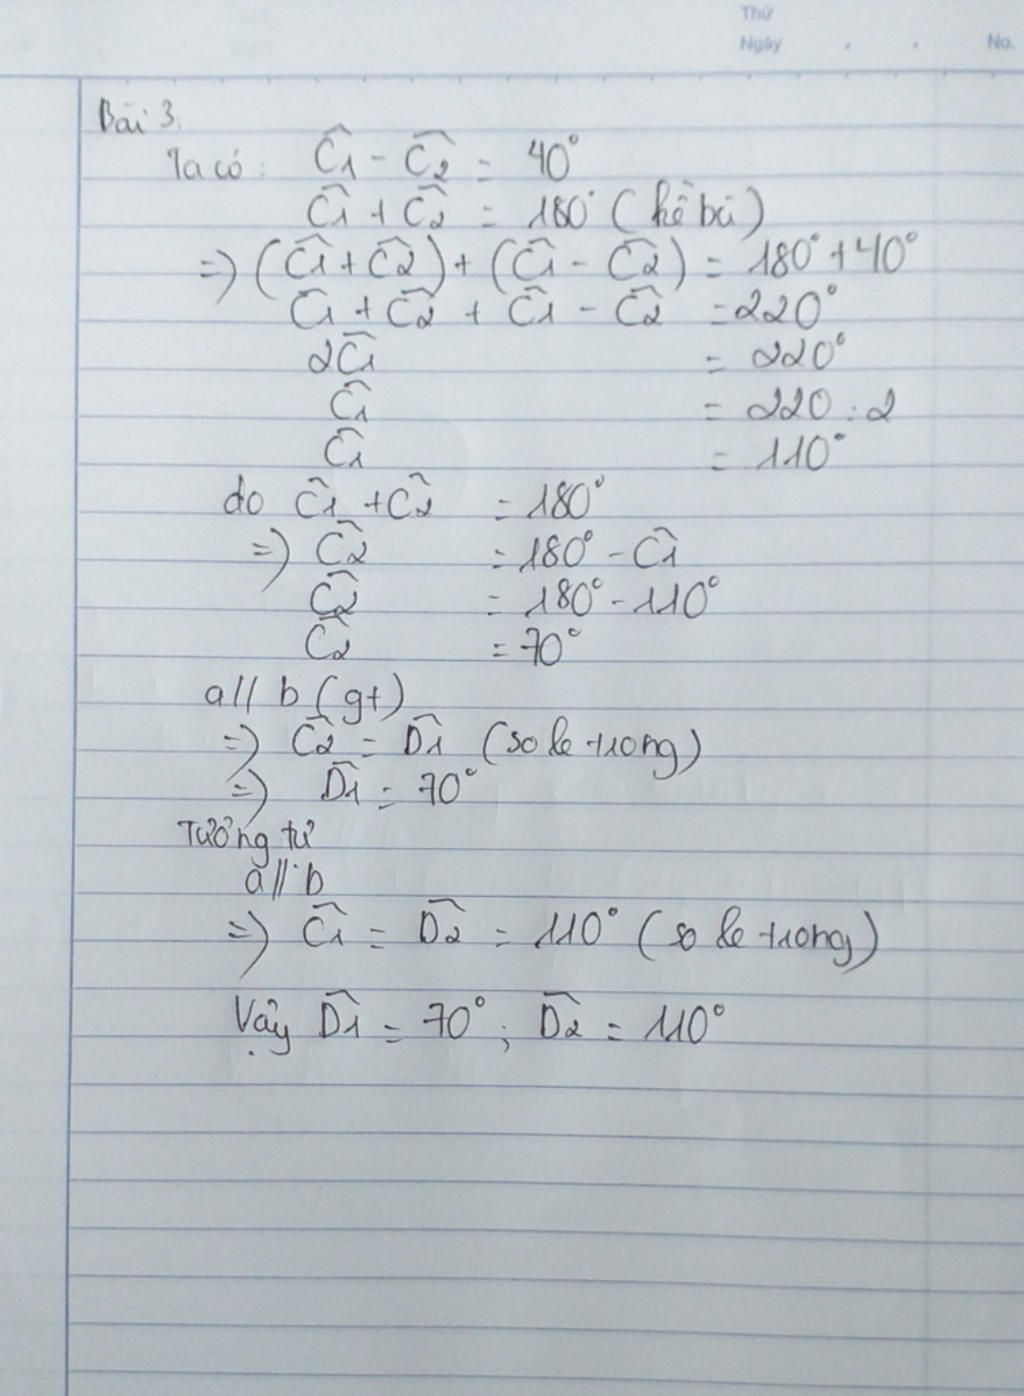 Thứ
Ngày . . No.
Bài 3
Ta có: Ĉ1 - Ĉ2 = 40°
Ĉ1 + Ĉ2 = 180° (kề bù)
=) (Ĉ1 + Ĉ2) + (Ĉ1 - Ĉ2) = 180° + 40°
Ĉ1 + Ĉ2 + Ĉ1 - Ĉ2 = 220°
2Ĉ1 = 220°
Ĉ1 = 220 : 2
Ĉ1 = 110°
do Ĉ1 + Ĉ2 = 180°
=) Ĉ2 = 180° - Ĉ1
Ĉ2 = 180° - 110°
Ĉ2 = 70°
a // b (gt)
=) Ĉ2 = D̂1 (so le trong)
=) D̂1 = 70°
Tương tự
a // b
=) Ĉ1 = D̂2 = 110° (so le trong)
Vậy D̂1 = 70° ; D̂2 = 110°